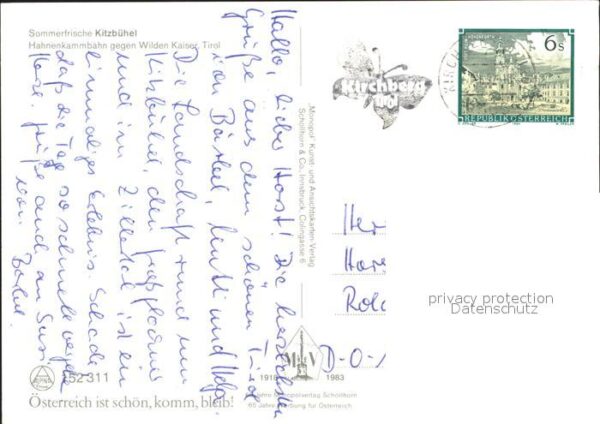 Sommerfrische Kitzbühel
Hahnenkammbahn gegen Wilden Kaiser, Tirol
Hallo, lieber Horst! Die herzlichsten
Grüße aus dem schönen Tirol
von Bärbel, Mutti und Helga.
Die Landschaft rund um
Kitzbühel, den
und im Zillertal ist ein
einmaliges Erlebnis. Schade
daß die Tage so schnell vergehen
Grüße auch an Susi
von
Bärbel
"Monopol" Kunst- und Ansichtskarten-Verlag
Schöllhorn & Co., Innsbruck, Colingasse 6
Kirchberg
Tirol
KIRCH
6 S
REPUBLIK ÖSTERREICH
Her
Hors
D-O-
privacy protection
Datenschutz
M V
1918
1983
52 311
Österreich ist schön, komm, bleib!
65 Jahre Monopolverlag Schöllhorn
65 Jahre Werbung für Österreich